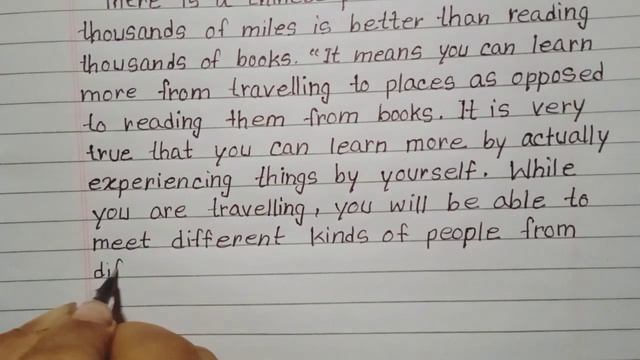 There is a Chinese
thousands of miles is better than reading
thousands of books. "It means you can learn
more from travelling to places as opposed
to reading them from books. It is very
true that you can learn more by actually
experiencing things by yourself. While
you are travelling, you will be able to
meet different kinds of people from
dif